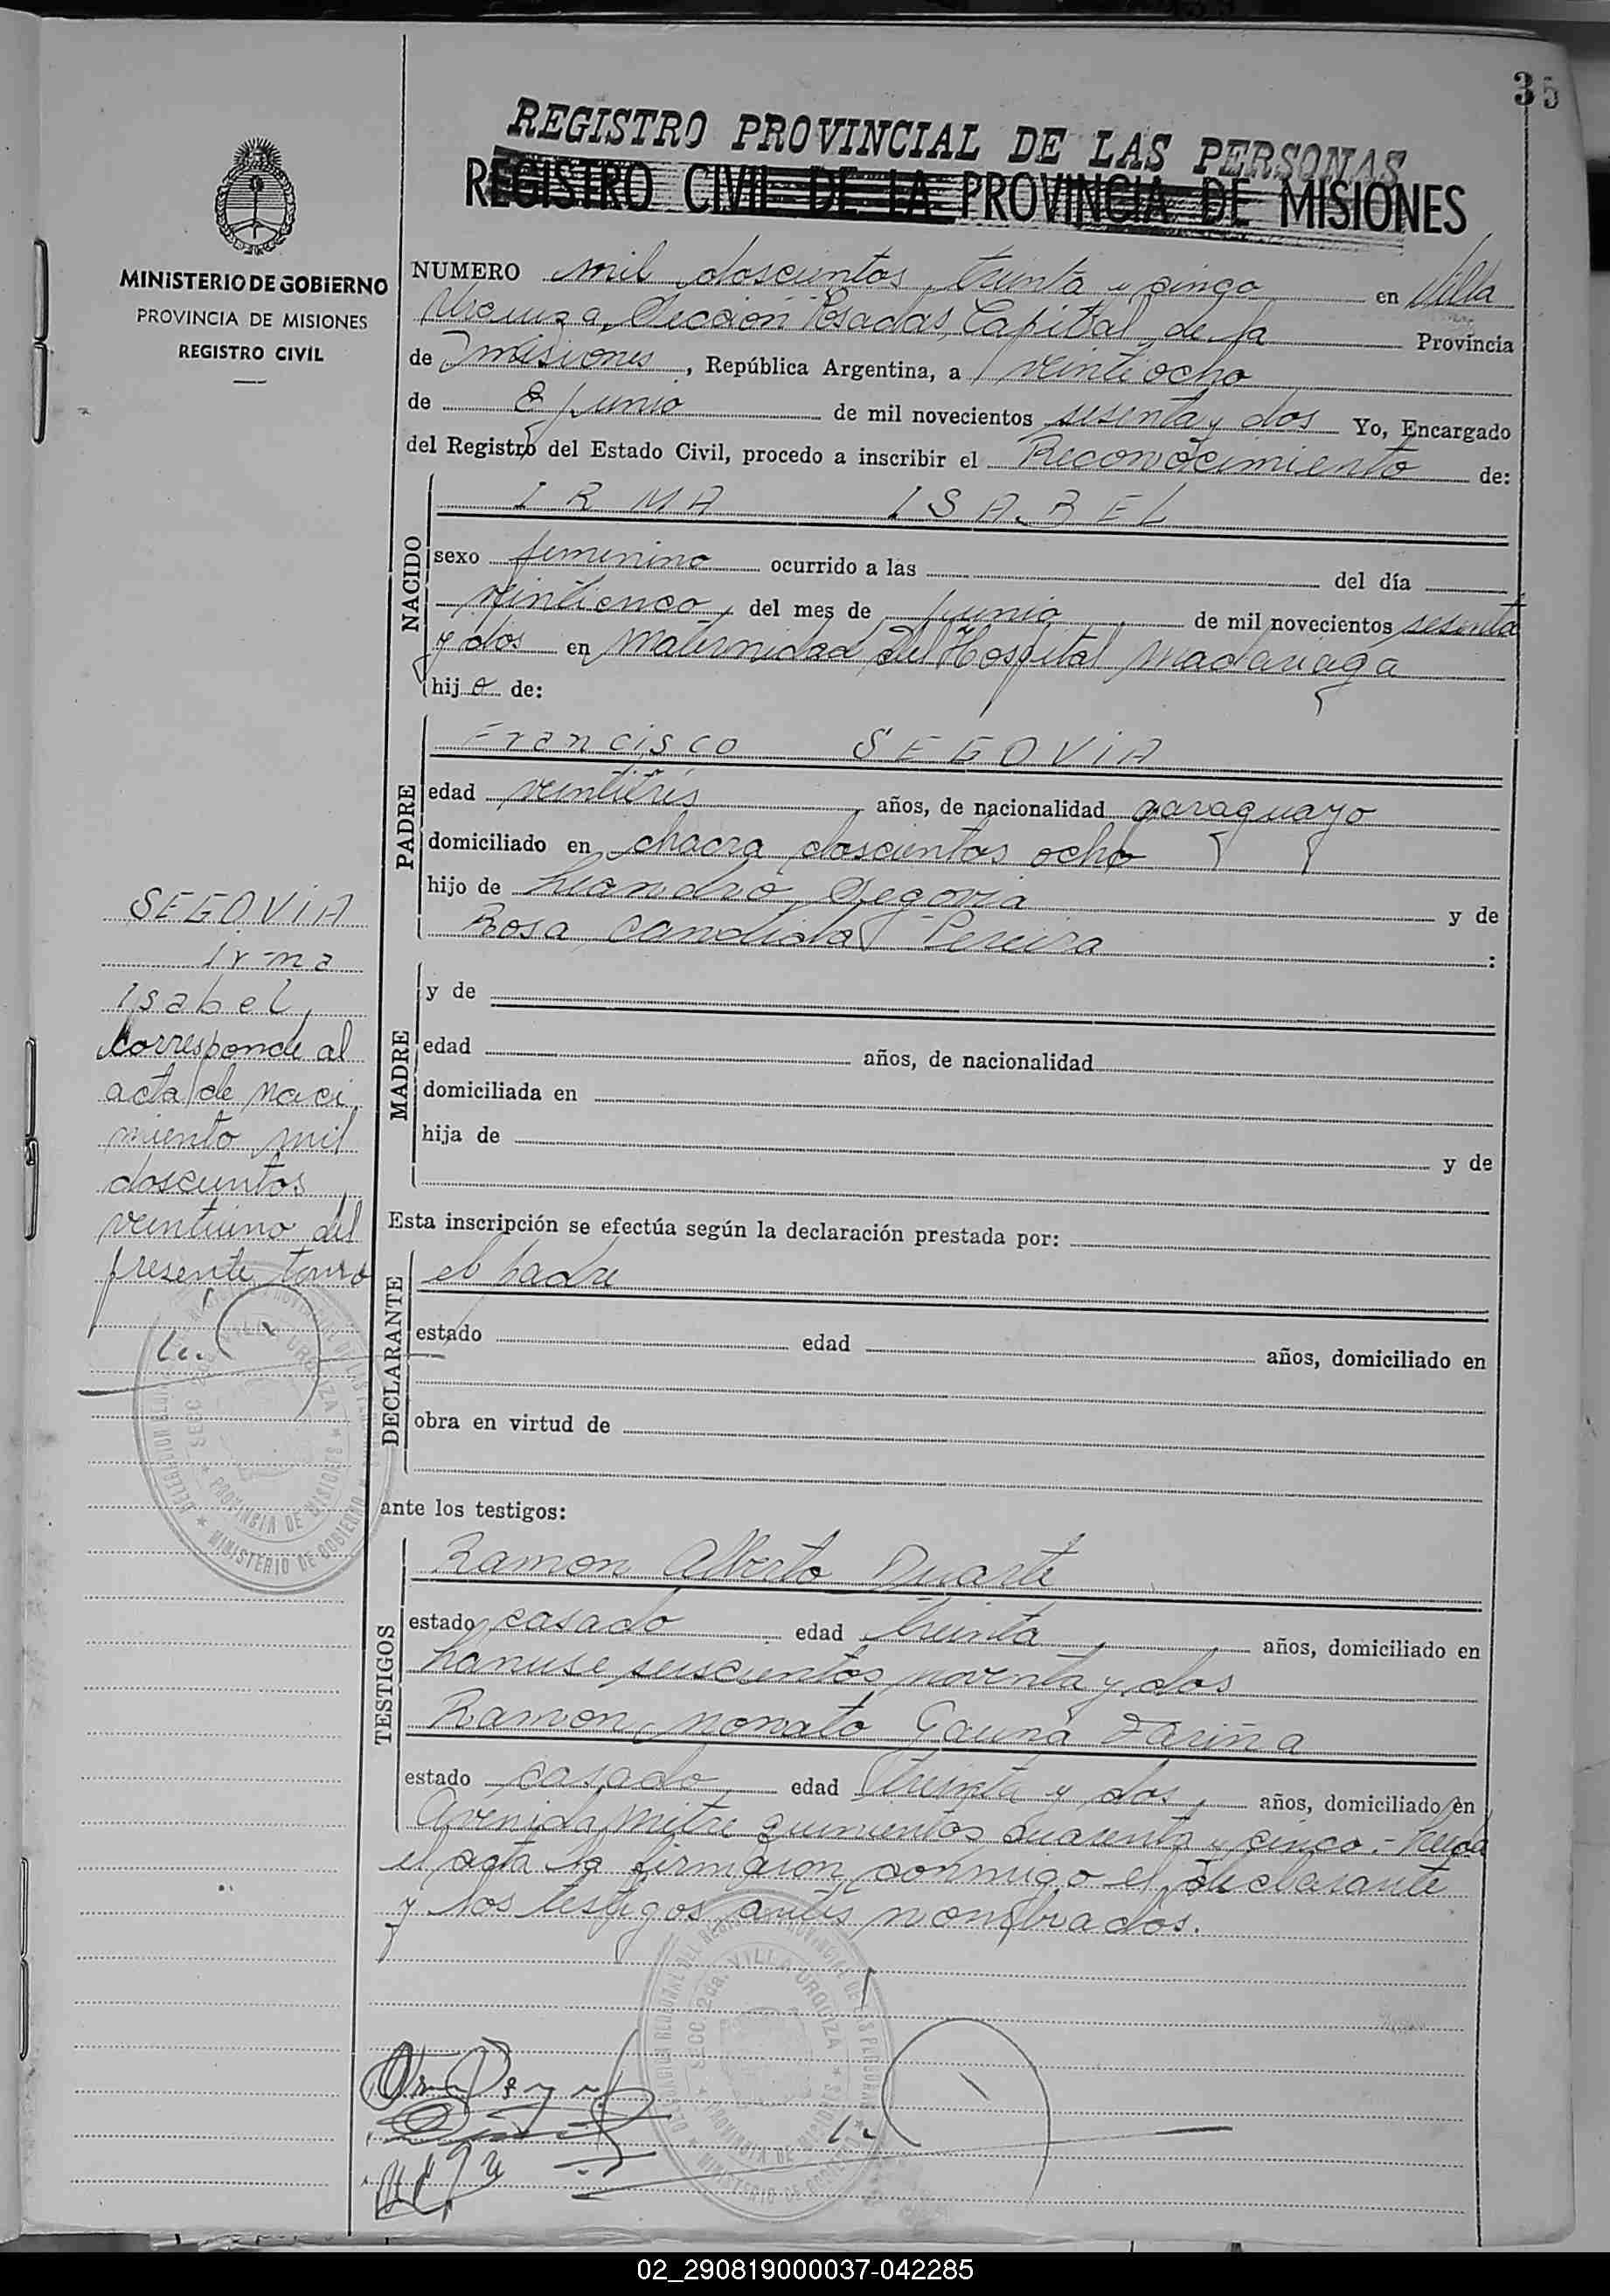 35
REGISTRO PROVINCIAL DE LAS PERSONAS
REGISTRO CIVIL DE LA PROVINCIA DE MISIONES
MINISTERIO DE GOBIERNO
PROVINCIA DE MISIONES
REGISTRO CIVIL
NUMERO mil doscientos treinta y cinco en Villa
Urquiza, Sección Posadas, Capital de la Provincia
de Misiones, República Argentina, a veintiocho
de Junio de mil novecientos sesenta y dos Yo, Encargado
del Registro del Estado Civil, procedo a inscribir el Reconocimiento de:
NACIDO
IRMA ISABEL
sexo femenino ocurrido a las del día
veinticinco, del mes de junio de mil novecientos sesenta
y dos en Maternidad del Hospital Madariaga
hija de:
PADRE
Francisco SEGOVIA
edad veintitrés años, de nacionalidad paraguayo
domiciliado en chacra doscientos ocho
hijo de Leandro Segovia y de
Rosa Candida Pereira :
MADRE
y de
edad años, de nacionalidad
domiciliada en
hija de y de
Esta inscripción se efectúa según la declaración prestada por:
DECLARANTE
el padre
estado edad años, domiciliado en
obra en virtud de
ante los testigos:
TESTIGOS
Ramon Alberto Duarte
estado casado edad treinta, años, domiciliado en
Lanuse seiscientos noventa y dos
Ramon Nonato Gauna Fariña
estado casado edad treinta y dos, años, domiciliado en
Avenida Mitre quinientos cuarenta y cinco.- Leida
el acta la firmaron conmigo el declarante
y los testigos antes nombrados.
SEGOVIA
Irma
Isabel,
Corresponde al
acta de naci
miento mil
doscientos
veintiuno del
presente tomo
VILLA URQUIZA
PROVINCIA DE MISIONES
MINISTERIO DE GOBIERNO
SECC. 2da. VILLA URQUIZA
PROVINCIA DE MISIONES
MINISTERIO DE GOBIERNO
02_290819000037-042285